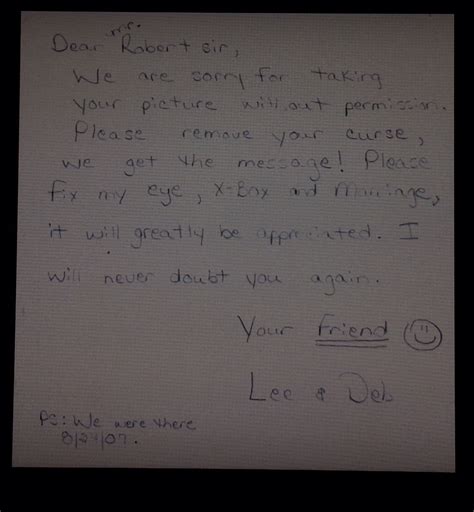 Dear Mr. Robert sir,
We are sorry for taking
your picture without permission.
Please remove your curse,
we get the message! Please
fix my eye, X-Box and Marriage,
it will greatly be appreciated. I
will never doubt you again.
Your Friend
Lee & Deb
PS: We were there
8/27/07.